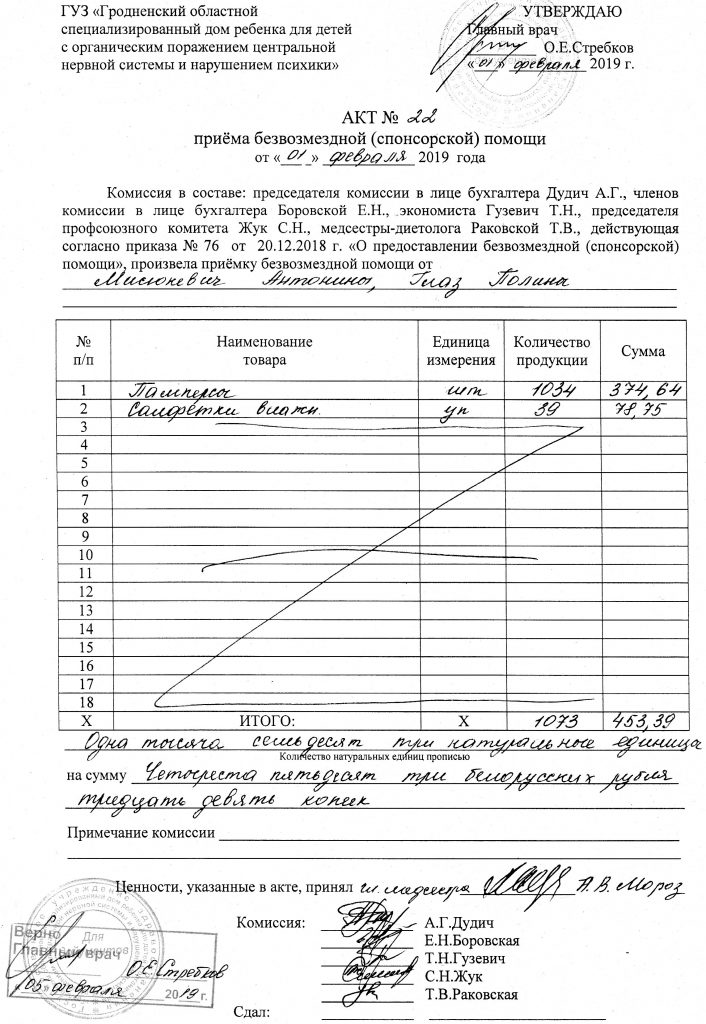 ГУЗ «Гродненский областной
специализированный дом ребенка для детей
с органическим поражением центральной
нервной системы и нарушением психики»
УТВЕРЖДАЮ
Главный врач
О.Е.Стребков
«01» февраля 2019 г.
АКТ № 22
приёма безвозмездной (спонсорской) помощи
от «01» февраля 2019 года
Комиссия в составе: председателя комиссии в лице бухгалтера Дудич А.Г., членов
комиссии в лице бухгалтера Боровской Е.Н., экономиста Гузевич Т.Н., председателя
профсоюзного комитета Жук С.Н., медсестры-диетолога Раковской Т.В., действующая
согласно приказа № 76 от 20.12.2018 г. «О предоставлении безвозмездной (спонсорской)
помощи», произвела приёмку безвозмездной помощи от
Мисюкевич Антонины, Глаз Полина
№ п/п Наименование товара Единица измерения Количество продукции Сумма
1 Памперсы шт 1034 374,64
2 Салфетки влажн. уп 39 78,75
3
4
5
6
7
8
9
10
11
12
13
14
15
16
17
18
Х ИТОГО: Х 1073 453,39
Одна тысяча семьдесят три натуральные единица
Количество натуральных единиц прописью
на сумму Четыреста пятьдесят три белорусских рубля
тридцать девять копеек
Примечание комиссии
Ценности, указанные в акте, принял гл. медсестра А.В. Мороз
Комиссия: А.Г.Дудич
Е.Н.Боровская
Т.Н.Гузевич
С.Н.Жук
Т.В.Раковская
Сдал:
Для
Верно
Главный врач
О.Е.Стребков
«05» февраля 2019 г.